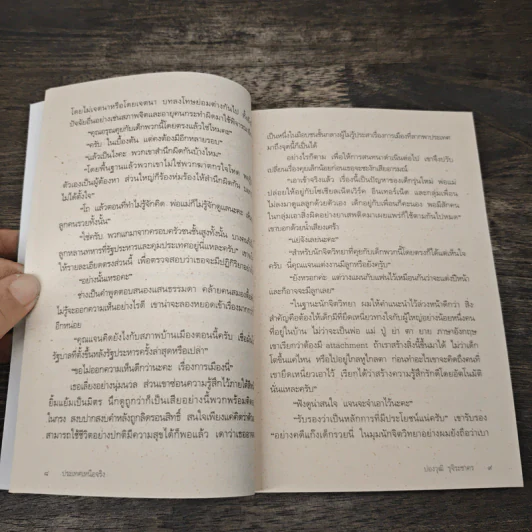 โดยไม่เจตนาหรือโดยเจตนา บทลงโทษย่อมต่างกันไป
ปัจจัยอื่นอย่างเช่นสภาพจิตและอายุคนกระทำผิดมาใช้พิจารณา
“คุณอรุณคุยกับเด็กพวกนี้โดยตรงแล้วใช่ไหมคะ”
“ครับ ในเบื้องต้น แต่คงต้องมีอีกหลายรอบ”
“แล้วเป็นไงคะ พวกเขาสำนึกผิดกันบ้างไหม”
“โดยพื้นฐานแล้วพวกเขาไม่ใช่พวกฆาตกรใจโหด
ตัวเองเป็นผู้ต้องหา ส่วนใหญ่ก็ร้องห่มร้องไห้สำนึกผิดกัน
ไม่ได้ตั้งใจ”
“โถ แล้วตอนที่ทำไม่รู้จักคิด พ่อแม่ก็ไม่รู้จักดูแลนะคะ
ลูกคนรวยทั้งนั้น”
“ใช่ครับ พวกแกมาจากครอบครัวชนชั้นสูงทั้งนั้น
ลูกหลานทหารที่รัฐประหารและคุมประเทศอยู่นี่แหละครับ”
ให้รายละเอียดตรงส่วนนี้ เพื่อตรวจสอบว่าเธอจะมีปฏิกิริยา
“อย่างนั้นเหรอคะ”
ช่างเป็นคำพูดตอบสนองแสนธรรมดา
ไม่รู้จะออกความเห็นอย่างไรดี เขาน่าจะลองหยอดเข้าเรื่อง
อีกหน่อย
“คุณแจนคิดยังไงกับสภาพบ้านเมืองตอนนี้ครับ
รัฐบาลที่ตั้งขึ้นหลังรัฐประหารครั้งล่าสุดหรือเปล่า”
“ขอไม่ออกความเห็นดีกว่านะคะ เรื่องการเมืองนี่”
เธอเลี่ยงอย่างนุ่มนวล ส่วนเขาซ่อนความรู้สึกไว้ภายใต้
ยิ้มแย้มเป็นมิตร นึกดูถูกว่าก็เป็นเสียอย่างนี้พวกพร้อม
ในกรง สงบปากสงบคำหลังถูกลิดรอนสิทธิ์ สนใจเพียงแค่คิดว่า
สามารถใช้ชีวิตอย่างปกติมีความสุขได้ก็พอแล้ว เดาว่าเธอ
๘ ประเทศเหนือจริง
เป็นหนึ่งในม็อบชนชั้นกลางผู้ไม่รู้ประสาเรื่องการเมืองที่ลากพาประเทศ
มาถึงจุดนี้ก็เป็นได้
อย่างไรก็ตาม เพื่อให้การสนทนาดำเนินต่อไป เขาจึงปรับ
เปลี่ยนเรื่องคุยเล็กน้อยก่อนเธอจะชะงักเสียอารมณ์
“เอาเข้าจริงแล้ว เรื่องนี้เป็นปัญหาของเด็กรุ่นใหม่ พ่อแม่
ปล่อยให้อยู่กับโซเชียลเน็ตเวิร์ค อินเทอร์เน็ต และกลุ่มเพื่อน
ไม่ลงมาดูแลลูกด้วยตัวเอง เด็กอยู่กับเพื่อนก็ตามเธอ พอมีสักคน
ในกลุ่มเอาสิ่งผิดอย่างยาเสพติดมาเผยแพร่ก็ใช้ตามกันไปหมด”
เขาบอกด้วยน้ำเสียงเคร่ง
“แย่จังเลยนะคะ”
“สำหรับนักจิตวิทยาที่คุยกับเด็กพวกนี้โดยตรงก็ได้แต่เห็นใจ
ครับ นี่คุณแจนแต่งงานมีลูกหรือยังครับ”
“ยังหรอกค่ะ แต่วางแผนกับแฟนไว้เหมือนกันว่าจะแต่งปีหน้า
และก็อาจจะมีลูกเลย”
“ในฐานะนักจิตวิทยา ผมให้คำแนะนำไว้ล่วงหน้าดีกว่า สิ่ง
สำคัญคือต้องให้เด็กมีที่ยึดเหนี่ยวทางใจกับผู้ใหญ่อย่างน้อยหนึ่งคน
ที่อยู่ในบ้าน ไม่ว่าจะเป็นพ่อ แม่ ปู่ ย่า ตา ยาย ภาษาอังกฤษ
เขาเรียกว่าต้องมี attachment ถ้าเราสร้างสิ่งนี้ขึ้นมาได้ ไม่ว่าเด็ก
โตขึ้นแค่ไหน หรือไปอยู่ไกลหูไกลตา ก่อนทำอะไรเขาจะคิดถึงคนที่
เขายึดเหนี่ยวเอาไว้ เรียกได้ว่าสร้างความรู้สึกรักดีโดยอัตโนมัติ
นั่นแหละครับ”
“ฟังดูน่าสนใจ แจนจะจำเอาไว้นะคะ”
“รับรองว่าเป็นหลักการที่มีประโยชน์แน่ครับ” เขารับรอง
“อย่างคดีแก๊งเด็กรวยนี่ ในมุมนักจิตวิทยาอย่างผมยังถือว่าเบา
ปองวุฒิ รุจิระชาคร ๙